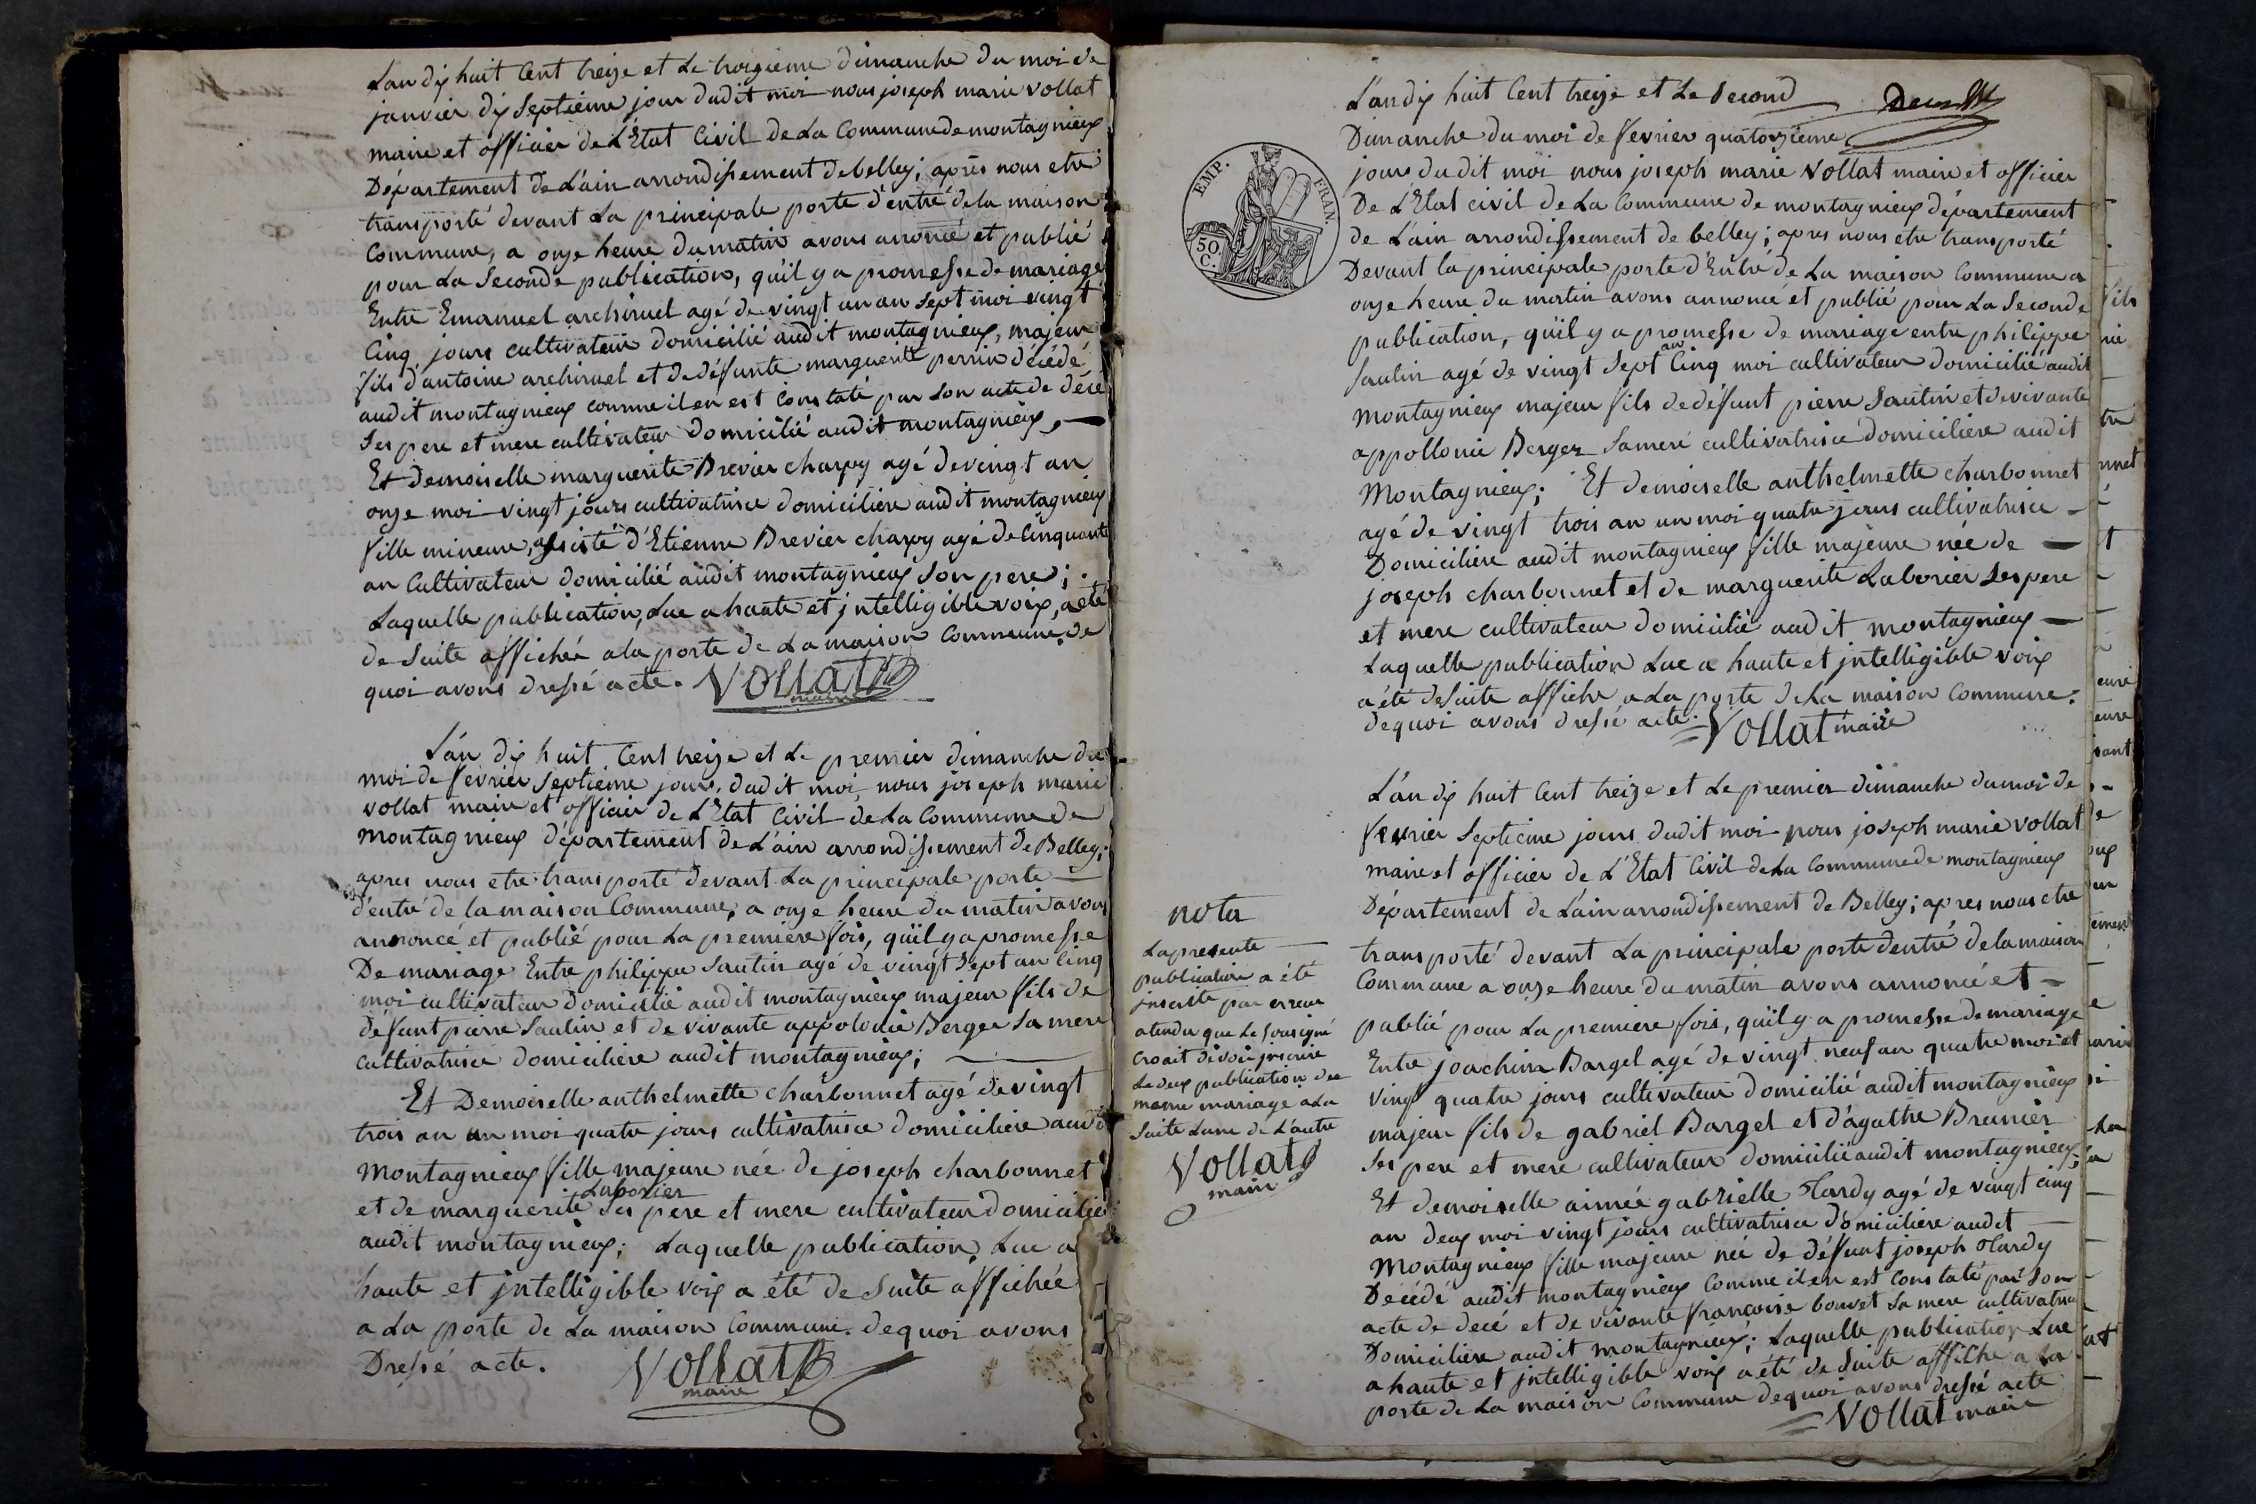 L'an dix huit Cent treize et Le troizieme dimanche du moi de
janvier dix Septieme jour dudit moi nous joseph marie vollat
maire et officier de L'Etat Civil de La Commune de montagnieux
Département de L'ain arrondissement de belley; après nous etre
transporté devant La principale porte d'entré de la maison
Commune, a onze heure du matin avons anoncé et publié
pour La Seconde publication, quil y a promesse de mariage
Entre Emanuel archinuel agé de vingt un an Sept moi vingt
Cinq jours cultivateur domicilié audit montagnieux, majeur
fils d'antoine archinuel et de défunte marguerite perrin décédé
audit montagnieux comme il en est Constaté par Son acte de décé
Ses pere et mere cultivateur domicilié audit montagnieux,
Et Demoiselle marguerite Brevier charpy agé de vingt an
onze moi vingt jours cultivatrice domiciliere audit montagnieux
fille mineure, assisté d'Etienne Brevier charpy agé de Cinquante
an Cultivateur domicilié audit montagnieux Son pere;
Laquelle publication, Lue a haute et jntelligible voix, a eté
de Suite affichée a la porte de La maison Commune. de
quoi avons dressé acte. VOllat
maire
L'an dix huit Cent treize et Le premier dimanche du
moi de fevrier Septieme jours, dudit moi, nous joseph marie
vollat maire et officier de L'Etat Civil de La Commune de
Montagnieux département de L'ain arrondissement de Belley;
apres nous etre transporté devant La principale porte
d'entré de la maison Commune, a onze heure du matin avons
annoncé et publié pour La premiere fois, quil y a promesse
De mariage Entre philippe Saulin agé de vingt Sept an Cinq
moi cultivateur domicilié audit montagnieux majeur fils de
défunt pierre Saulin et de vivante appolonie Berger Sa mere
cultivatrice domiciliere audit montagnieux;
Et Demoiselle anthelmette charbonnet agé de vingt
trois an un moi quatre jours cultivatrice domiciliere audit
Montagnieux fille majeure née de joseph charbonnet
Laborier
et de marguerite Ses pere et mere cultivateur domicilié
audit montagnieux; Laquelle publication Lue a
haute et jntelligible voix a été de Suite affichée
a La porte de La maison Commune. de quoi avons
Dressé acte. VOllat
maire
L'an dix huit Cent treize et Le Second
Dimanche du moi de fevrier quatorzieme
EMP. FRAN.
50
C.
jours dudit moi nous joseph marie Vollat maire et officier
De L'Etat civil de La Commune de montagnieux département
de L'ain arrondissement de belley; apres nous etre transporté
Devant la principale porte d'Entré de La maison Commune a
onze heure du matin avons annoncé et publié pour La Seconde
publication, quil y a promesse de mariage entre philippe
an
Saulin agé de vingt Sept Cinq moi cultivateur domicilié audit
Montagnieux majeur fils de défunt pierre Saulin et de vivante
appollonie Berger Sa mere cultivatrice domiciliere audit
Montagnieux; Et demoiselle anthelmette charbonnet
agé de vingt trois an un moi quatre jours cultivatrice
Domiciliere audit montagnieux fille majeure née de
joseph charbonnet et de marguerite Laborier Ses pere
et mere cultivateur domicilié audit montagnieux
Laquelle publication Lue a haute et jntelligible voix
a été de Suite affiché a La porte de La maison Commune.
de quoi avons dressé acte. VOllat maire
L'an dix huit Cent treize et Le premier dimanche du moi de
fevrier Septieme jours dudit moi nous joseph marie vollat
maire et officier de L'Etat Civil de La Commune de montagnieux
Département de L'ain arrondissement de Belley; apres nous etre
transporté devant La principale porte d'entré de la maison
Commune a onze heure du matin avons annoncé et
publié pour La premiere fois, quil y a promesse de mariage
Entre joachim Bargel agé de vingt neuf an quatre moi et
vingt quatre jours cultivateur domicilié audit montagnieux
majeur fils de gabriel Bargel et d'agathe Brunier
Ses pere et mere cultivateur domicilié audit montagnieux;
Et demoiselle aimée gabrielle Tardy agé de vingt cinq
an deux moi vingt jours cultivatrice domiciliere audit
Montagnieux fille majeure née de défunt joseph Tardy
Décédé audit montagnieux Comme il en est Constaté par Son
acte de decé et de vivante françoise bouvet Sa mere cultivatrice
Domiciliere audit montagnieux; Laquelle publication Lue
a haute et jntelligible voix a été de Suite affiché a La
porte de La maison Commune de quoi avons dressé acte
VOllat maire
nota
La presente
publication a été
jnscrite par erreur
atendu que Le Sousigné
Croait devoir jnscrire
Le deux publication du
meme mariage a La
Suite L'une de L'autre
VOllat
maire